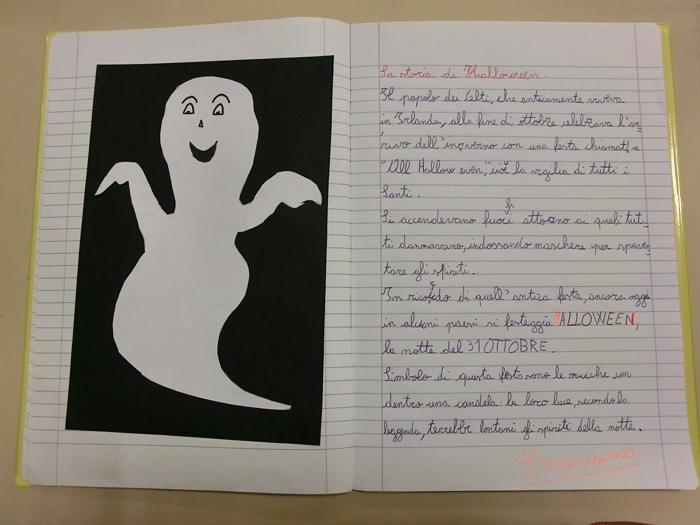 La storia di Hhalloween.
Il popolo dei Celti, che anticamente viveva
in Irlanda, alla fine di ottobre celebrava l'ar-
rivo dell'inverno con una festa chiamata
"All Hallow even", cioè la vigilia di tutti i
Santi.
Si accendevano fuochi attorno ai quali tut-
ti danzavano, indossando maschere per spaven-
tare gli spiriti.
In ricordo di quell'antica festa, ancora oggi
in alcuni paesi si festeggia HALLOWEEN,
la notte del 31 OTTOBRE.
Simbolo di questa festa sono le zucche con
dentro una candela: la loro luce, secondo la
leggenda, terrebbe lontani gli spiriti della notte.
Bravissimo